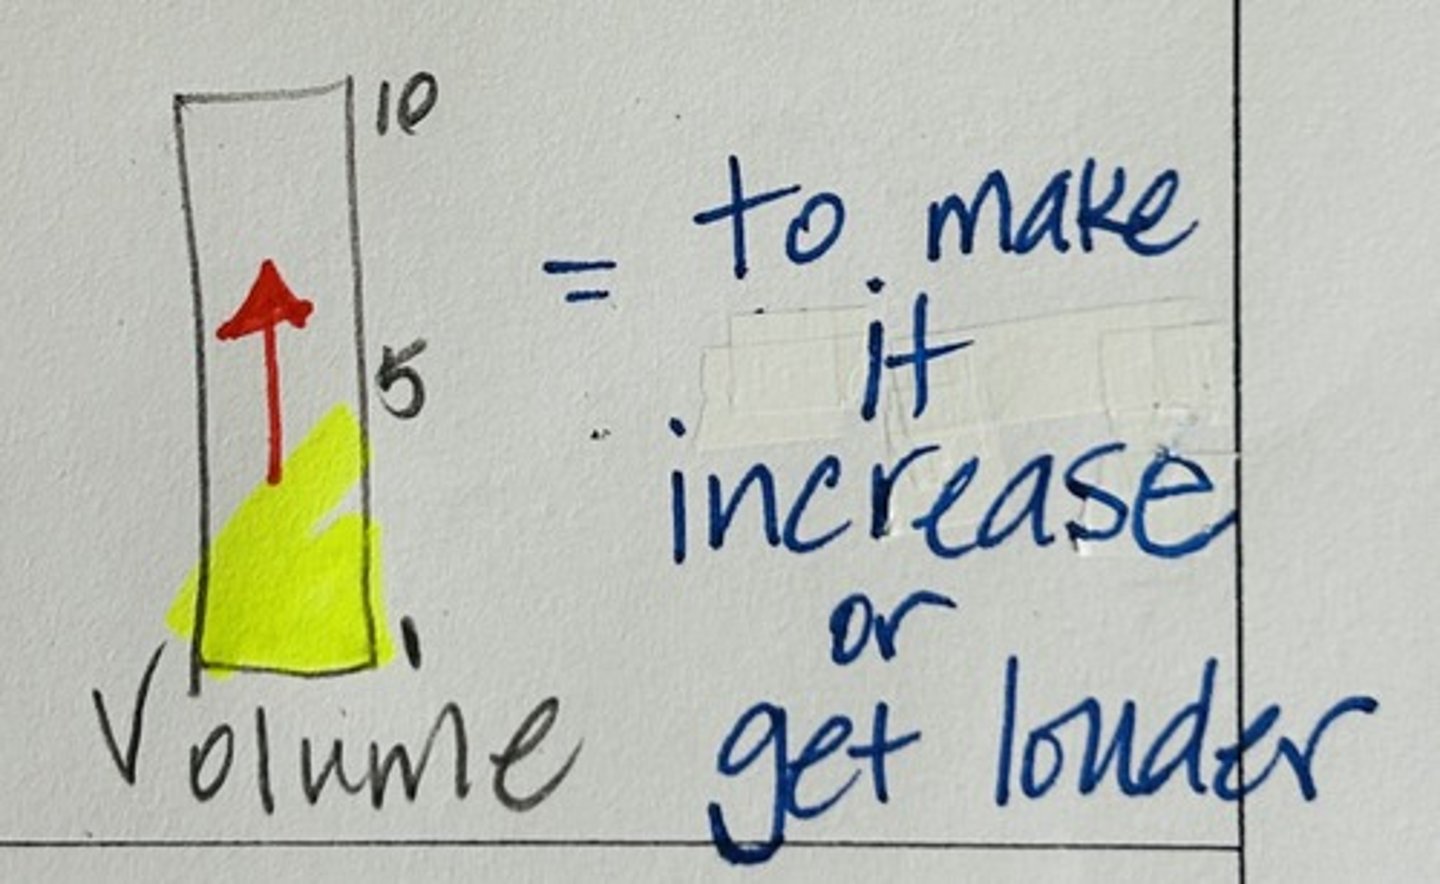 10
5
1
Volume
= to make
it
increase
or
get louder